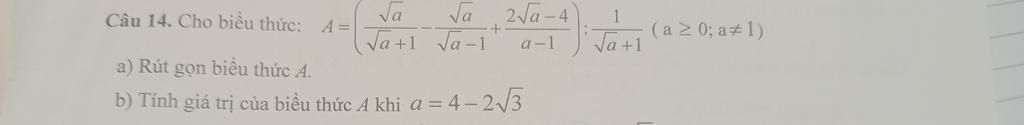 Câu 14. Cho biểu thức: A = (√a/(√a+1) − √a/(√a−1) + (2√a−4)/(a−1)) : 1/(√a+1) (a ≥ 0; a ≠ 1)
a) Rút gọn biểu thức A.
b) Tính giá trị của biểu thức A khi a = 4 − 2√3